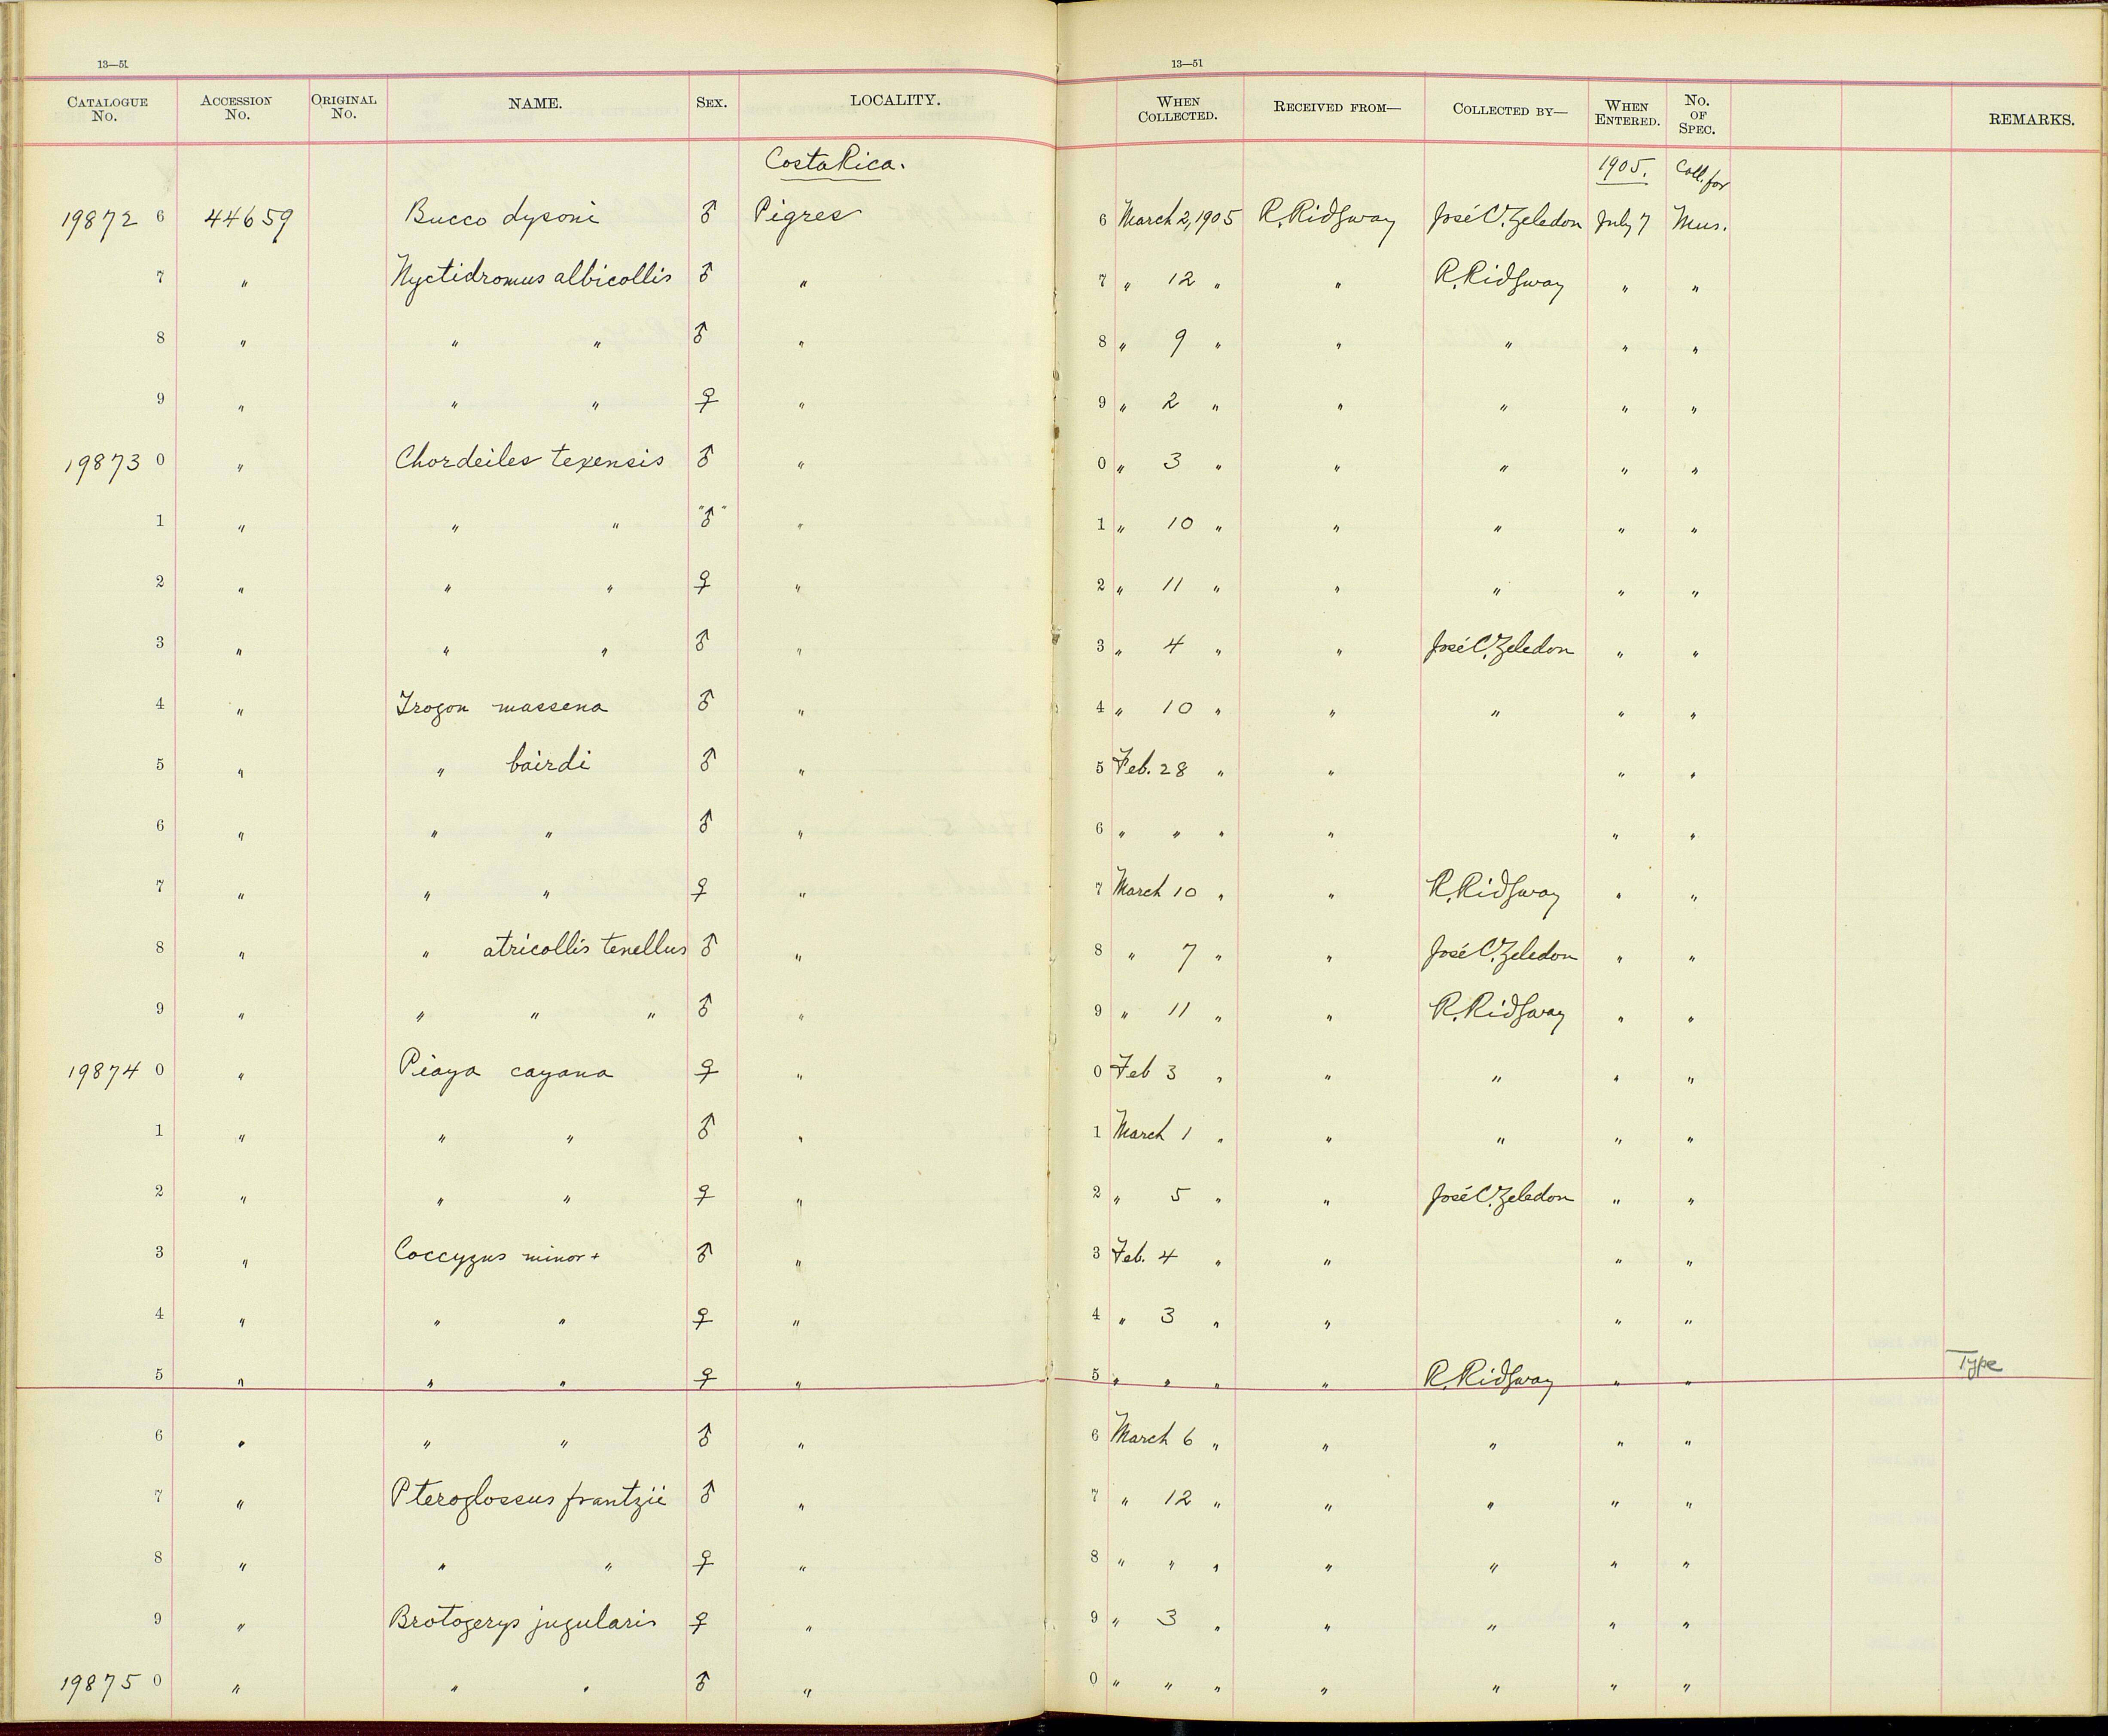 13—51 13—51
CATALOGUE No. ACCESSION No. ORIGINAL No. NAME. SEX. LOCALITY. WHEN COLLECTED. RECEIVED FROM— COLLECTED BY— WHEN ENTERED. No. OF SPEC. REMARKS.
Costa Rica. 1905. Coll. for
19872 6 44659 Bucco dysoni ♂ Pigres 6 March 2, 1905 R. Ridgway José C. Zeledon July 7 Mus.
7 " Nyctidromus albicollis ♂ " 7 " 12 " " R. Ridgway " "
8 " " " ♂ " 8 " 9 " " " " "
9 " " " ♀ " 9 " 2 " " " " "
19873 0 " Chordeiles texensis ♂ " 0 " 3 " " " " "
1 " " " "♂" " 1 " 10 " " " " "
2 " " " ♀ " 2 " 11 " " " " "
3 " " " ♂ " 3 " 4 " " José C. Zeledon " "
4 " Trogon massena ♂ " 4 " 10 " " " " "
5 " " bairdi ♂ " 5 Feb. 28 " " " "
6 " " " ♂ " 6 " " " " " "
7 " " " ♀ " 7 March 10 " " R. Ridgway " "
8 " " atricollis tenellus ♂ " 8 " 7 " " José C. Zeledon " "
9 " " " " ♂ " 9 " 11 " " R. Ridgway " "
19874 0 " Piaya cayana ♀ " 0 Feb 3 " " " " "
1 " " " ♂ " 1 March 1 " " " " "
2 " " " ♀ " 2 " 5 " " José C. Zeledon " "
3 " Coccyzus minor + ♂ " 3 Feb. 4 " " " "
4 " " " ♀ " 4 " 3 " " " "
5 " " " ♀ " 5 " " " " R. Ridgway " " Type
6 " " " ♂ " 6 March 6 " " " " "
7 " Pteroglossus frantzii ♂ " 7 " 12 " " " " "
8 " " " ♀ " 8 " " " " " " "
9 " Brotogerys jugularis ♀ " 9 " 3 " " " " "
19875 0 " " " ♂ " 0 " " " " " " "